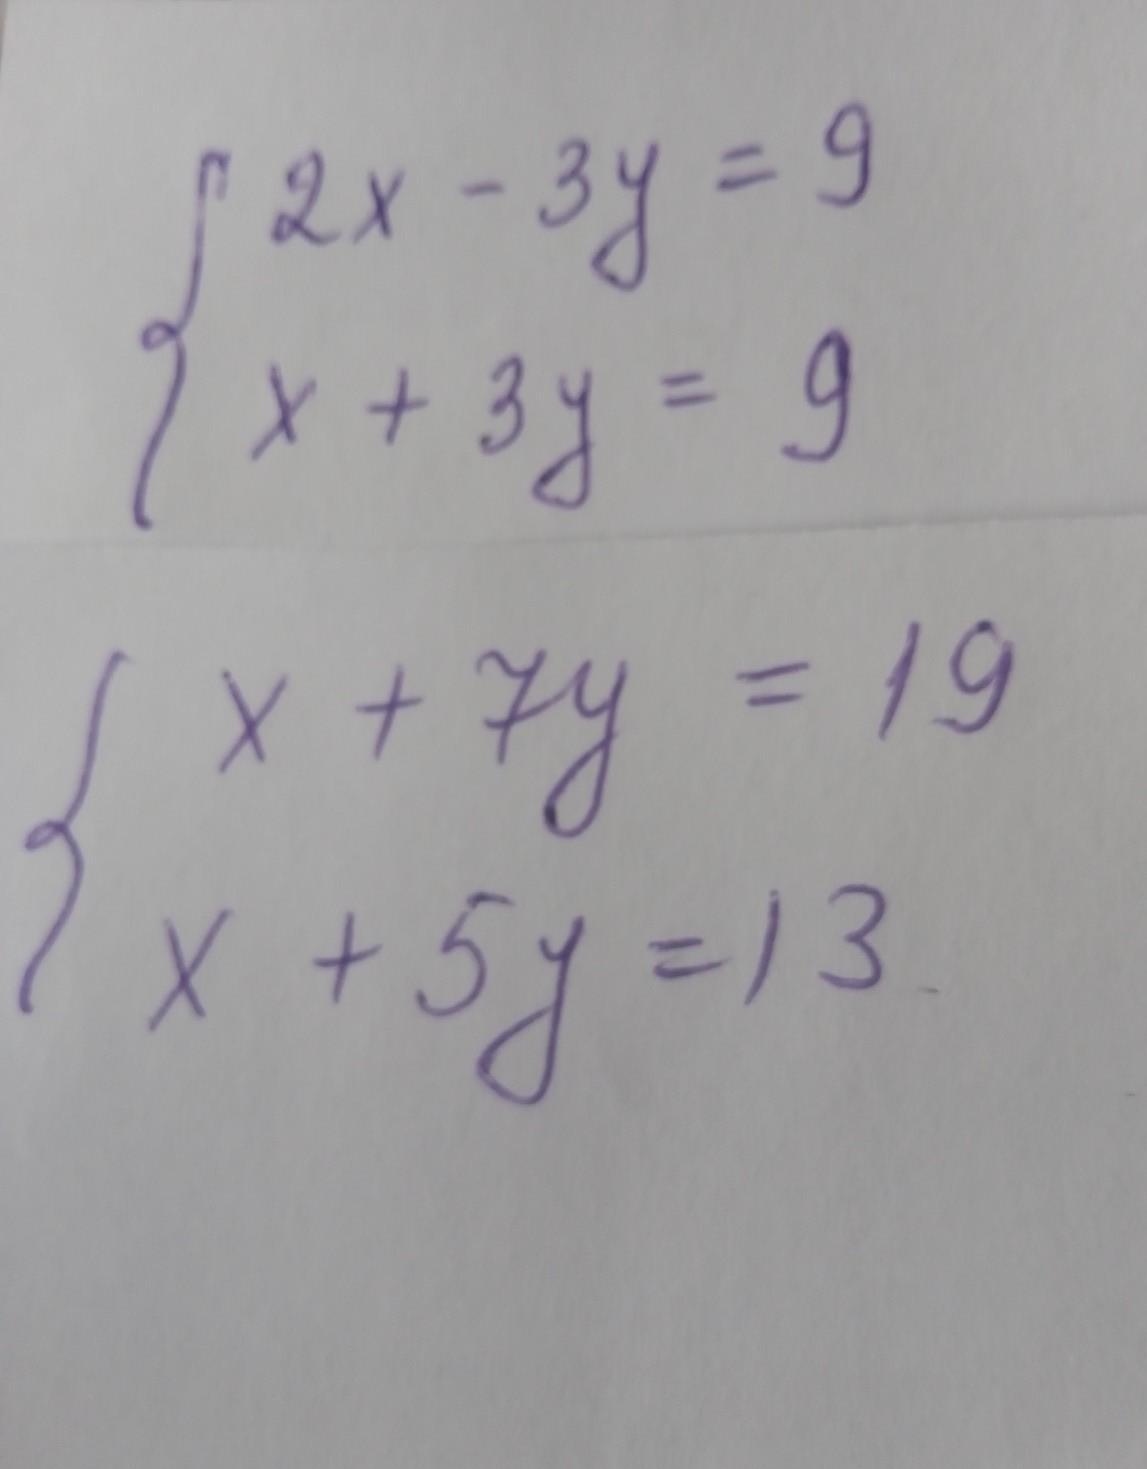 2x - 3y = 9
x + 3y = 9
x + 7y = 19
x + 5y = 13